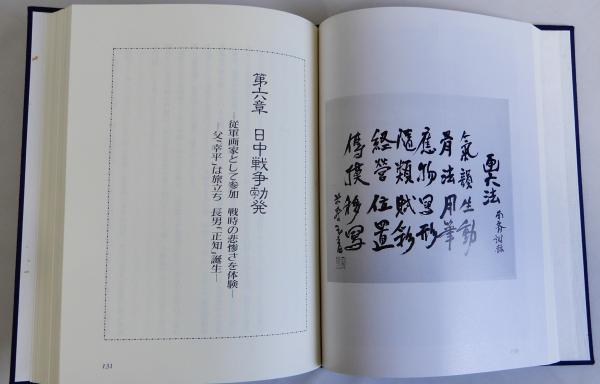 画六法
南齊謝赫
氣韻生動
骨法用筆
應物写形
隨類賦彩
経營位置
傳摸移写
第六章 日中戦争勃発
―従軍画家として参加 戦時の悲惨さを体験―
―父“幸平”は旅立ち 長男“正知”誕生―
131